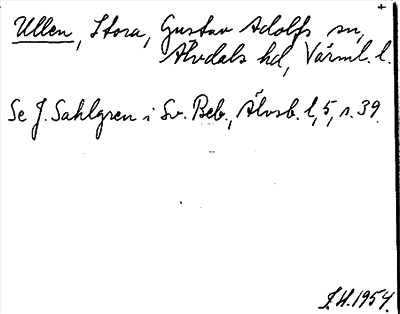 Ullen, Stora, Gustav Adolfs sn,
Älvdals hd, Värml. l.
Se J. Sahlgren i Sv. Beb., Älvsb. l, 5, s. 39.
J.H. 1954.